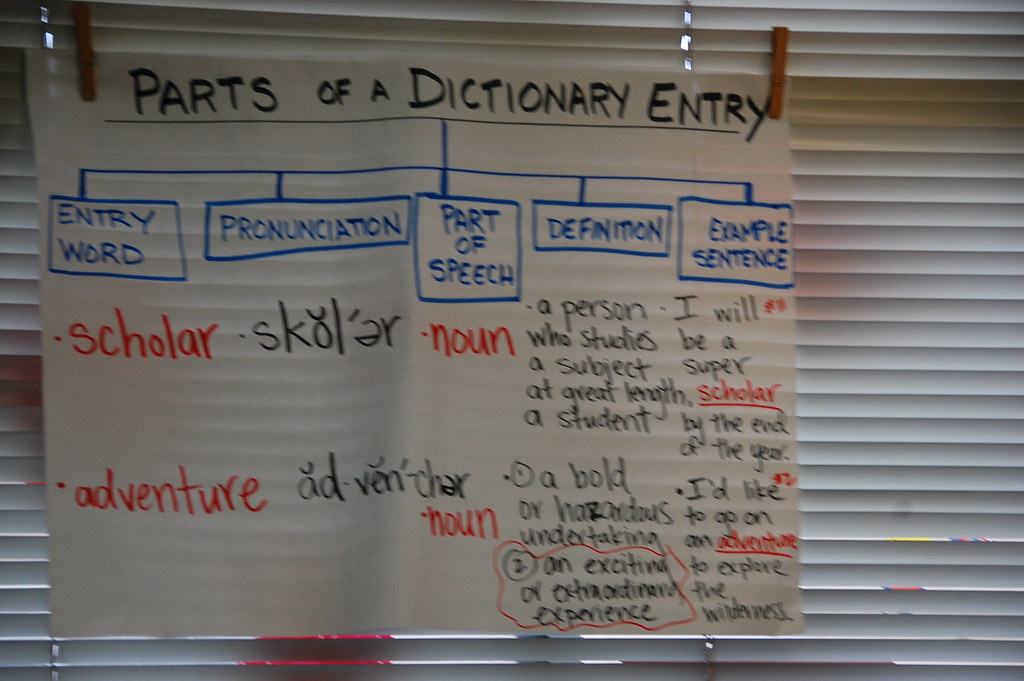 PARTS OF A DICTIONARY ENTRY
ENTRY
WORD
PRONUNCIATION
PART
OF
SPEECH
DEFINITION
EXAMPLE
SENTENCE
· scholar
· skŏl′ər
· noun
· a person
who studies
a subject
at great length,
a student
· I will #1
be a
super
scholar
by the end
of the year.
· adventure
ăd-vĕn′-chər
· noun
· ① a bold
or hazardous
undertaking
② an exciting
or extraordinary
experience
· I'd like #2
to go on
an adventure
to explore
the
wilderness.